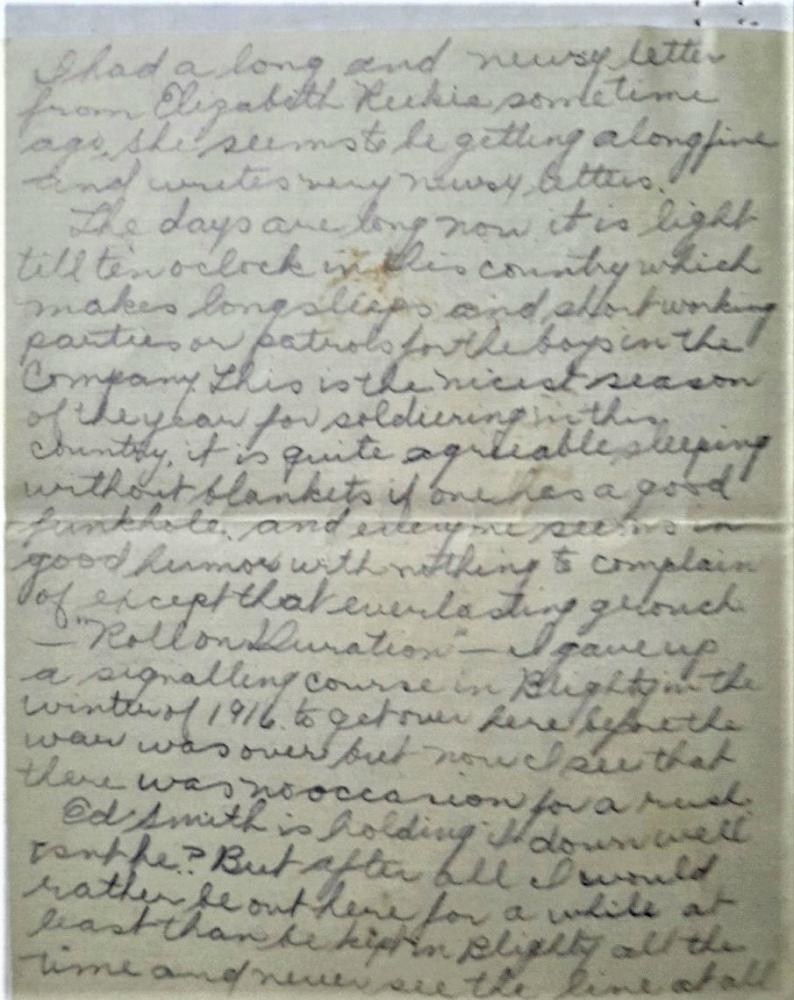 I had a long and newsy letter
from Elizabeth Reekie sometime
ago, she seems to be getting along fine
and writes very newsy letters.
The days are long now it is light
till ten oclock in this country which
makes long sleeps and short working
parties or patrols for the boys in the
Company. This is the nicest season
of the year for soldiering in this
country, it is quite agreeable sleeping
without blankets if one has a good
funkhole, and everyone seems in
good humor with nothing to complain
of except that everlasting grouch
— "Roll on Duration" — I gave up
a signalling course in Blighty in the
winter of 1916 to get over here before the
war was over but now I see that
there was no occasion for a rush.
Ed Smith is holding it down well
isnt he? But after all I would
rather be out here for a while at
least than be kept in Blighty all the
time and never see the line at all